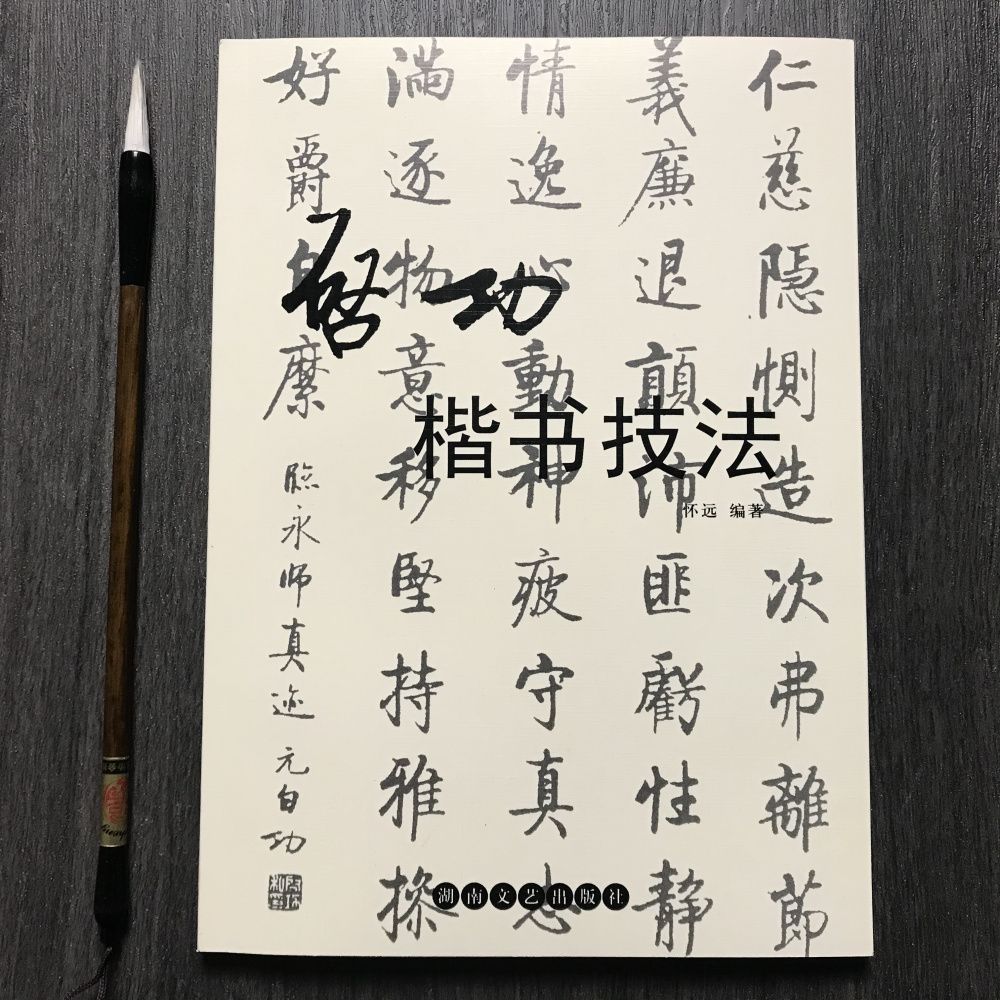 仁慈隱惻造次弗離節
義廉退顛沛匪虧性靜
情逸心動神疲守真志
滿逐物意移堅持雅操
好爵自縻
臨永师真迹 元白功
啓功
楷书技法
怀远 编著
湖南文艺出版社